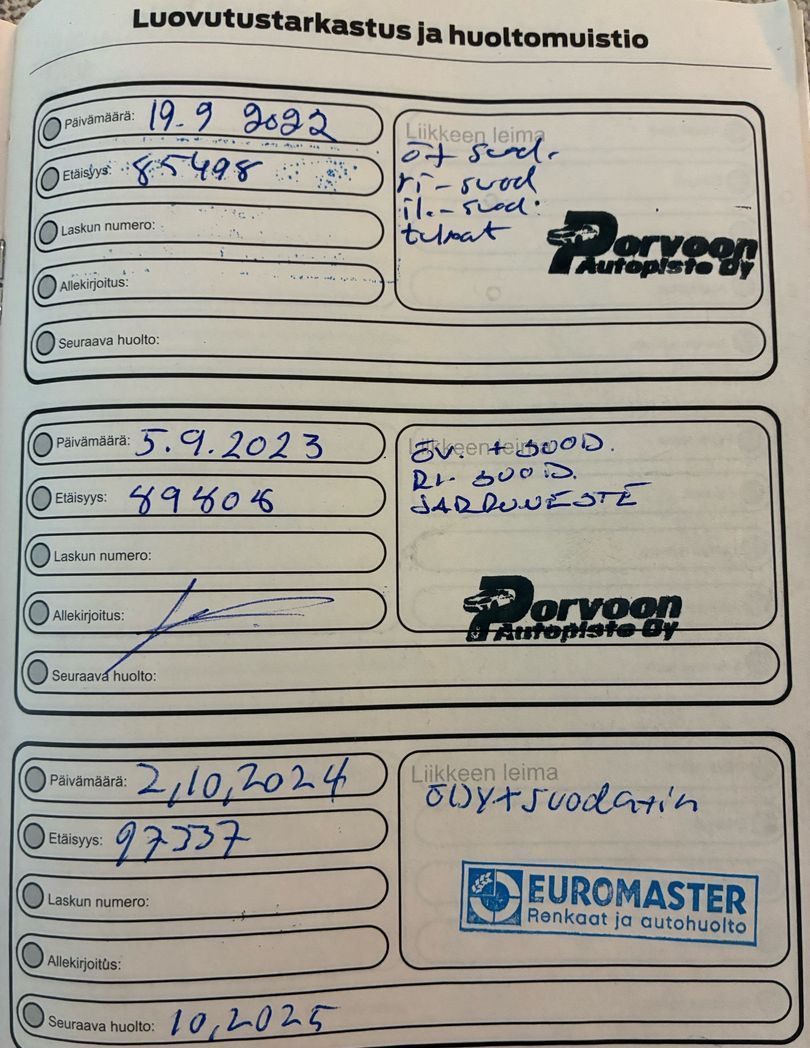 Luovutustarkastus ja huoltomuistio
Päivämäärä: 19.9 2022
Etäisyys: 85498
Laskun numero:
Allekirjoitus:
Seuraava huolto:
Liikkeen leima
öt suod.
ri-suod
il.-suod.
tulpat
Porvoon
Autopiste Oy
Päivämäärä: 5.9.2023
Etäisyys: 89808
Laskun numero:
Allekirjoitus:
Seuraava huolto:
Liikkeen leima
ÖV. + SUOD.
RI. SUOD.
JARRUNESTE
Porvoon
Autopiste Oy
Päivämäärä: 2,10,2024
Etäisyys: 97337
Laskun numero:
Allekirjoitus:
Seuraava huolto: 10,2025
Liikkeen leima
öljy+suodatin
EUROMASTER
Renkaat ja autohuolto